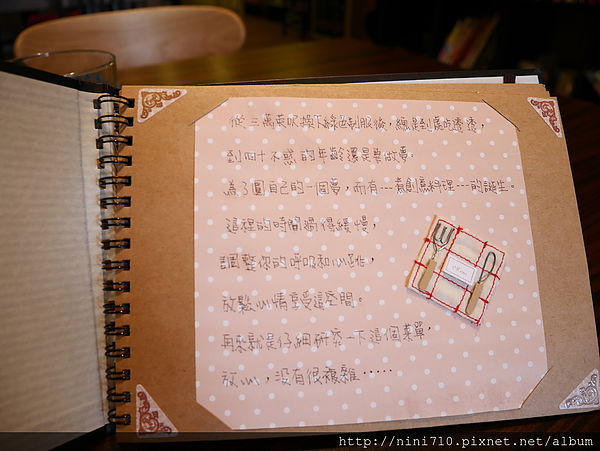 從三萬英呎換下綠色制服後,總是到處吃透透,
到四十不惑的年齡還是要做夢。
為了圓自己的一個夢,而有---煮創意料理---的誕生。
這裡的時間過得緩慢,
調整你的呼吸和心跳,
放鬆心情享受這空間。
再來就是仔細研究一下這個菜單,
放心,没有很複雜……
http://nini710.pixnet.net/album